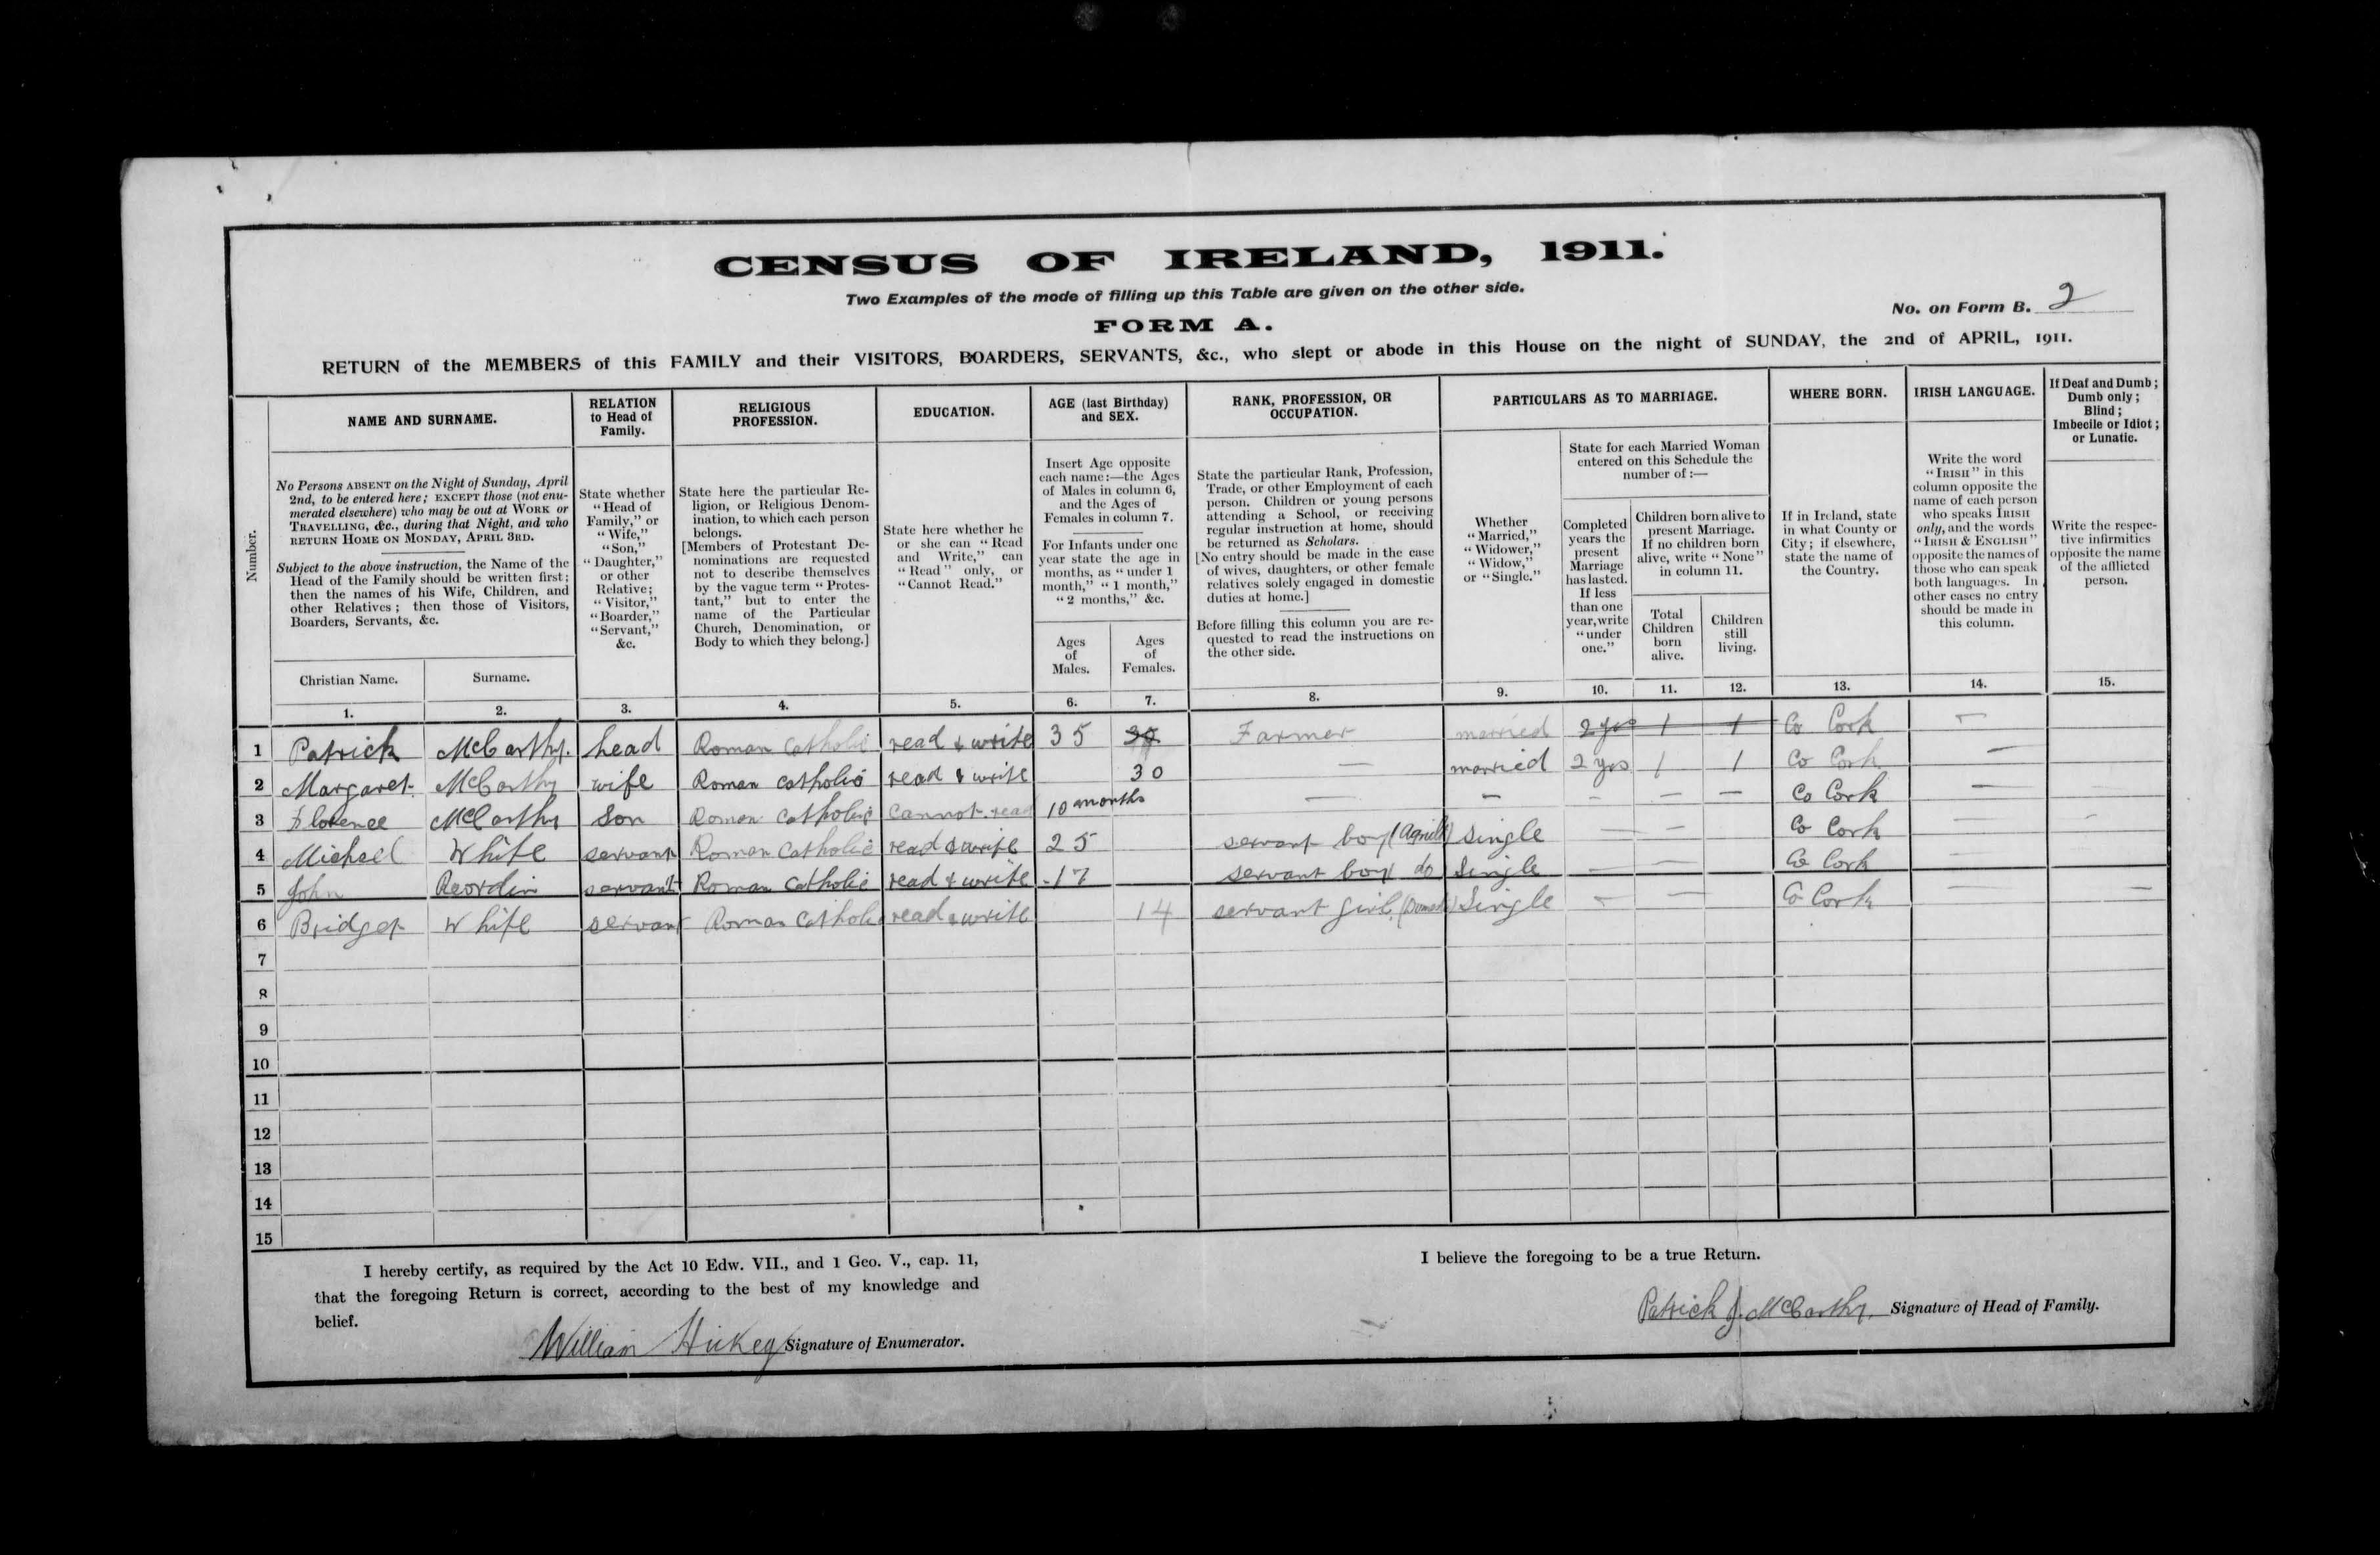 CENSUS OF IRELAND, 1911.
Two Examples of the mode of filling up this Table are given on the other side.
No. on Form B. 2
FORM A.
RETURN of the MEMBERS of this FAMILY and their VISITORS, BOARDERS, SERVANTS, &c., who slept or abode in this House on the night of SUNDAY, the 2nd of APRIL, 1911.
Number.
NAME AND SURNAME.
No Persons ABSENT on the Night of Sunday, April
2nd, to be entered here; EXCEPT those (not enu-
merated elsewhere) who may be out at WORK or
TRAVELLING, &c., during that Night, and who
RETURN HOME ON MONDAY, APRIL 3RD.
Subject to the above instruction, the Name of the
Head of the Family should be written first;
then the names of his Wife, Children, and
other Relatives; then those of Visitors,
Boarders, Servants, &c.
Christian Name.
1.
Surname.
2.
RELATION
to Head of
Family.
State whether
"Head of
Family," or
"Wife,"
"Son,"
"Daughter,"
or other
Relative;
"Visitor,"
"Boarder,"
"Servant,"
&c.
3.
RELIGIOUS
PROFESSION.
State here the particular Re-
ligion, or Religious Denom-
ination, to which each person
belongs.
[Members of Protestant De-
nominations are requested
not to describe themselves
by the vague term "Protes-
tant," but to enter the
name of the Particular
Church, Denomination, or
Body to which they belong.]
4.
EDUCATION.
State here whether he
or she can "Read
and Write," can
"Read" only, or
"Cannot Read."
5.
AGE (last Birthday)
and SEX.
Insert Age opposite
each name:—the Ages
of Males in column 6,
and the Ages of
Females in column 7.
For Infants under one
year state the age in
months, as "under 1
month," "1 month,"
"2 months," &c.
Ages
of
Males.
6.
Ages
of
Females.
7.
RANK, PROFESSION, OR
OCCUPATION.
State the particular Rank, Profession,
Trade, or other Employment of each
person. Children or young persons
attending a School, or receiving
regular instruction at home, should
be returned as Scholars.
[No entry should be made in the case
of wives, daughters, or other female
relatives solely engaged in domestic
duties at home.]
Before filling this column you are re-
quested to read the instructions on
the other side.
8.
PARTICULARS AS TO MARRIAGE.
Whether
"Married,"
"Widower,"
"Widow,"
or "Single."
9.
State for each Married Woman
entered on this Schedule the
number of:—
Completed
years the
present
Marriage
has lasted.
If less
than one
year, write
"under
one."
10.
Children born alive to
present Marriage.
If no children born
alive, write "None"
in column 11.
Total
Children
born
alive.
11.
Children
still
living.
12.
WHERE BORN.
If in Ireland, state
in what County or
City; if elsewhere,
state the name of
the Country.
13.
IRISH LANGUAGE.
Write the word
"IRISH" in this
column opposite the
name of each person
who speaks IRISH
only, and the words
"IRISH & ENGLISH"
opposite the names of
those who can speak
both languages. In
other cases no entry
should be made in
this column.
14.
If Deaf and Dumb;
Dumb only;
Blind;
Imbecile or Idiot;
or Lunatic.
Write the respec-
tive infirmities
opposite the name
of the afflicted
person.
15.
1 Patrick McCarthy. head Roman Catholic read & write 35 Farmer married 2 yrs 1 1 Co Cork —
2 Margaret McCarthy wife Roman Catholic read & write 30 — married 2 yrs 1 1 Co Cork —
3 Florence McCarthy Son Roman Catholic Cannot read 10 months — — — — — Co Cork —
4 Michael White servant Roman Catholic read & write 25 servant boy single — — Co Cork — -
5 John Reordin servant Roman Catholic read & write 17 servant boy do Single — — Co Cork —
6 Bridget White servant Roman Catholic read & write 14 servant girl Single - — Co Cork — —
7
8
9
10
11
12
13
14
15
I hereby certify, as required by the Act 10 Edw. VII., and 1 Geo. V., cap. 11,
that the foregoing Return is correct, according to the best of my knowledge and
belief.
William Hickey Signature of Enumerator.
I believe the foregoing to be a true Return.
Patrick J. McCarthy. Signature of Head of Family.